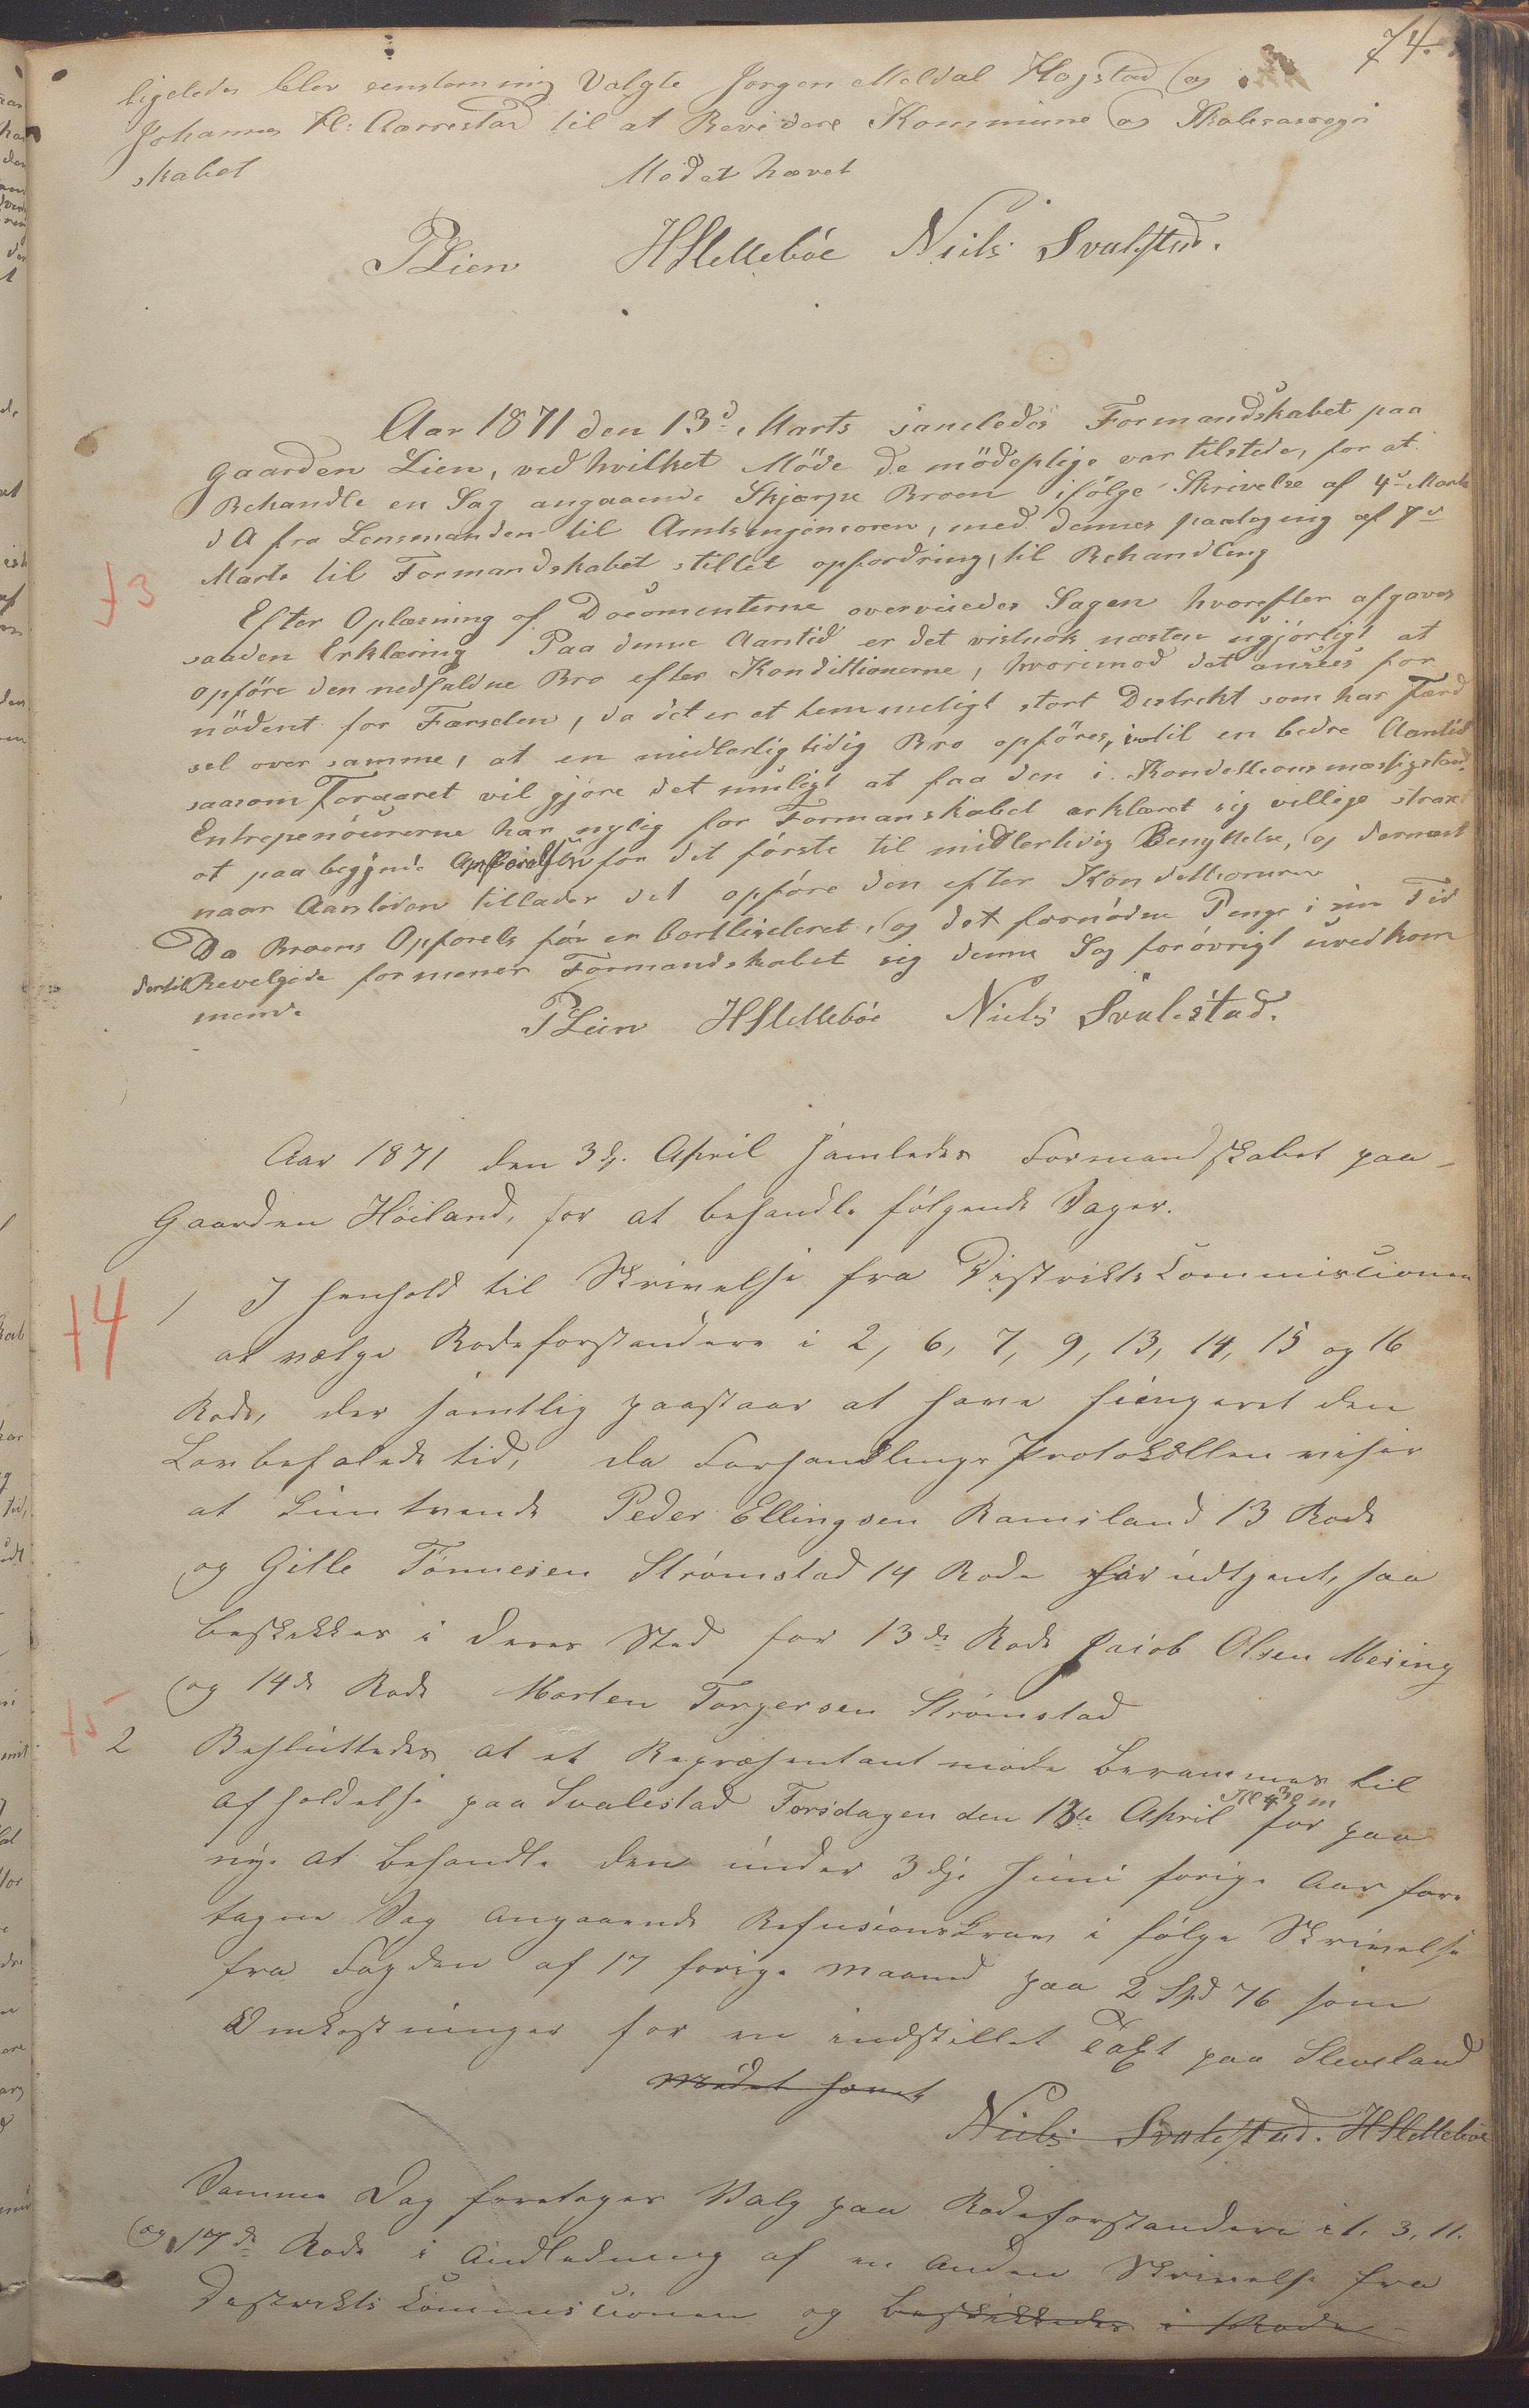 74.
ligeledes blev eenstemmig Valgte Jørgen Meldal Hogstad og
Johannes Kl: Aarrestad til at Revidere Kommune og Skolecasseregn
skabet
Mødet hævet
PLien HSletteböe Niels Svalestad.
Aar 1871 den 13d Marts samledes Formandskabet paa
Gaarden Lien, ved hvilket Möde de mödeplige var tilstede, for at
Behandle en Sag angaaende Skjærpe Broen ifölge Skrivelse af 4d Marts
d A fra Lensmanden til Amtsingenieoren, med dennes paategnig af 7d
Marts til Formandskabet stillet opfordring, til Behandling
+3
Efter Oplæsning af Documenterne overveiedes Sagen hvorefter afgaves
saaden Erklæring Paa denne Aarstid er det vistnok næsten ugjörligt at
opföre den nedfaldne Bro efter Kondittionerne, hvorimod det ansees for
nödent for Færselen, da det er et temmeligt stort Destrekt som har Færd
sel over samme, at en midlerligtidig Bro opföres, indtil en bedre Aarstid
saasom Foraaret vil gjöre det muligt at faa den i Kondettionsmæssigstand.
Entrepenöurerne har nylig for Formanskabet erklæret sig villige strax
at paabegynde Opförelsen for det förste til midlertidig Benyttelse, og dernæst
naar Aarstiden tillader det opföre den efter Kondettionerne
Da Broens Opförels för er bortliciteret, og det fornödne Penge i sin Tid
dertil Bevelgede formener Formandskabet sig denne Sag forövrigt uvedkom
mende
PLien HSlettebøe Niels Svalestad.
Aar 1871 den 3die April samledes Formandskabet paa
Gaarden Høiland, for at behandle følgende Sager.
+4
1 I henhold til Skrivelse fra Distrikts Commissionen
at vælge Rodeforstandere i 2, 6, 7, 9, 13, 14, 15 og 16
Rode, der samtlig paastaar at have fungeret den
Lovbefalede tid, da Forhandlings Protokollen viser
at kun tvende Peder Ellingsen Ramsland 13 Rode
og Gitle Tönnesen Strömstad 14 Rode har udtjent, saa
beskikkes i deres Sted for 13de Rode Jacob Olsen Mesing
og 14de Rode Morten Torgersen Strømstad
+5
2 Besluttedes at et Repræsentantmøde berammes til
afholdelse paa Svalestad Torsdagen den 13de April Kl 4 Em for paa
nye at behandle den under 3die Juni forige Aar fore
tagne Sag angaaende Refusionskrav i følge Skrivelse
fra Fogden af 17 forige Maaned paa 2 Spd 76 som
Omkostninger for en indstillet Taxt paa Sleveland
Mødet hævet
Niels Svalestad. HSlettebøe
Samme Dag foretages Valg paa Rodeforstandere i 1. 3, 11.
og 17de Rode i Andledning af en anden Skrivelse fra
Destrikts Commissionen og beskikkedes i 1 Rode